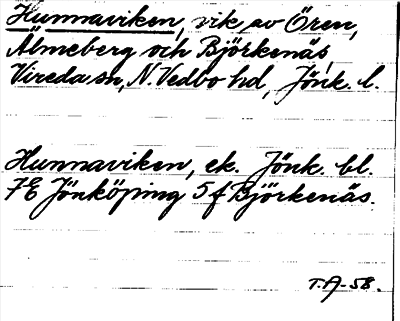 Hunnaviken, vik av Ören,
Älmeberg och Björkenäs,
Vireda sn, N. Vedbo hd, Jönk. l.
Hunnaviken, ek. Jönk. bl.
7E Jönköping 5 f Björkenäs.
T.A-58.